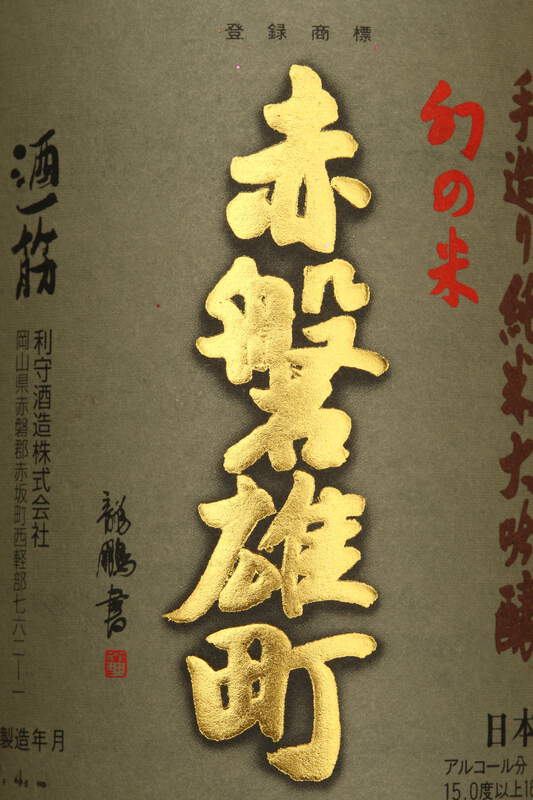 登録商標
手造り純米大吟醸
幻の米
赤磐雄町
酒一筋
利守酒造株式会社
岡山県赤磐郡赤坂町西軽部七六二―一
龍鵬書
製造年月
日本
アルコール分
15.0度以上